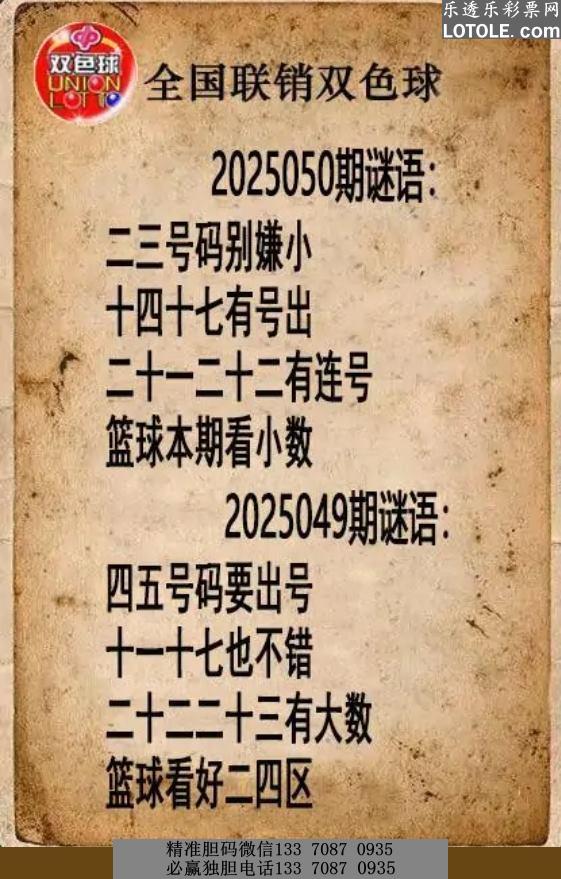 乐透乐彩票网
LOTOLE.com
双色球
UNION
LOTTO
全国联销双色球
2025050期谜语：
二三号码别嫌小
十四十七有号出
二十一二十二有连号
篮球本期看小数
2025049期谜语：
四五号码要出号
十一十七也不错
二十二二十三有大数
篮球看好二四区
精准胆码微信133 7087 0935
必赢独胆电话133 7087 0935